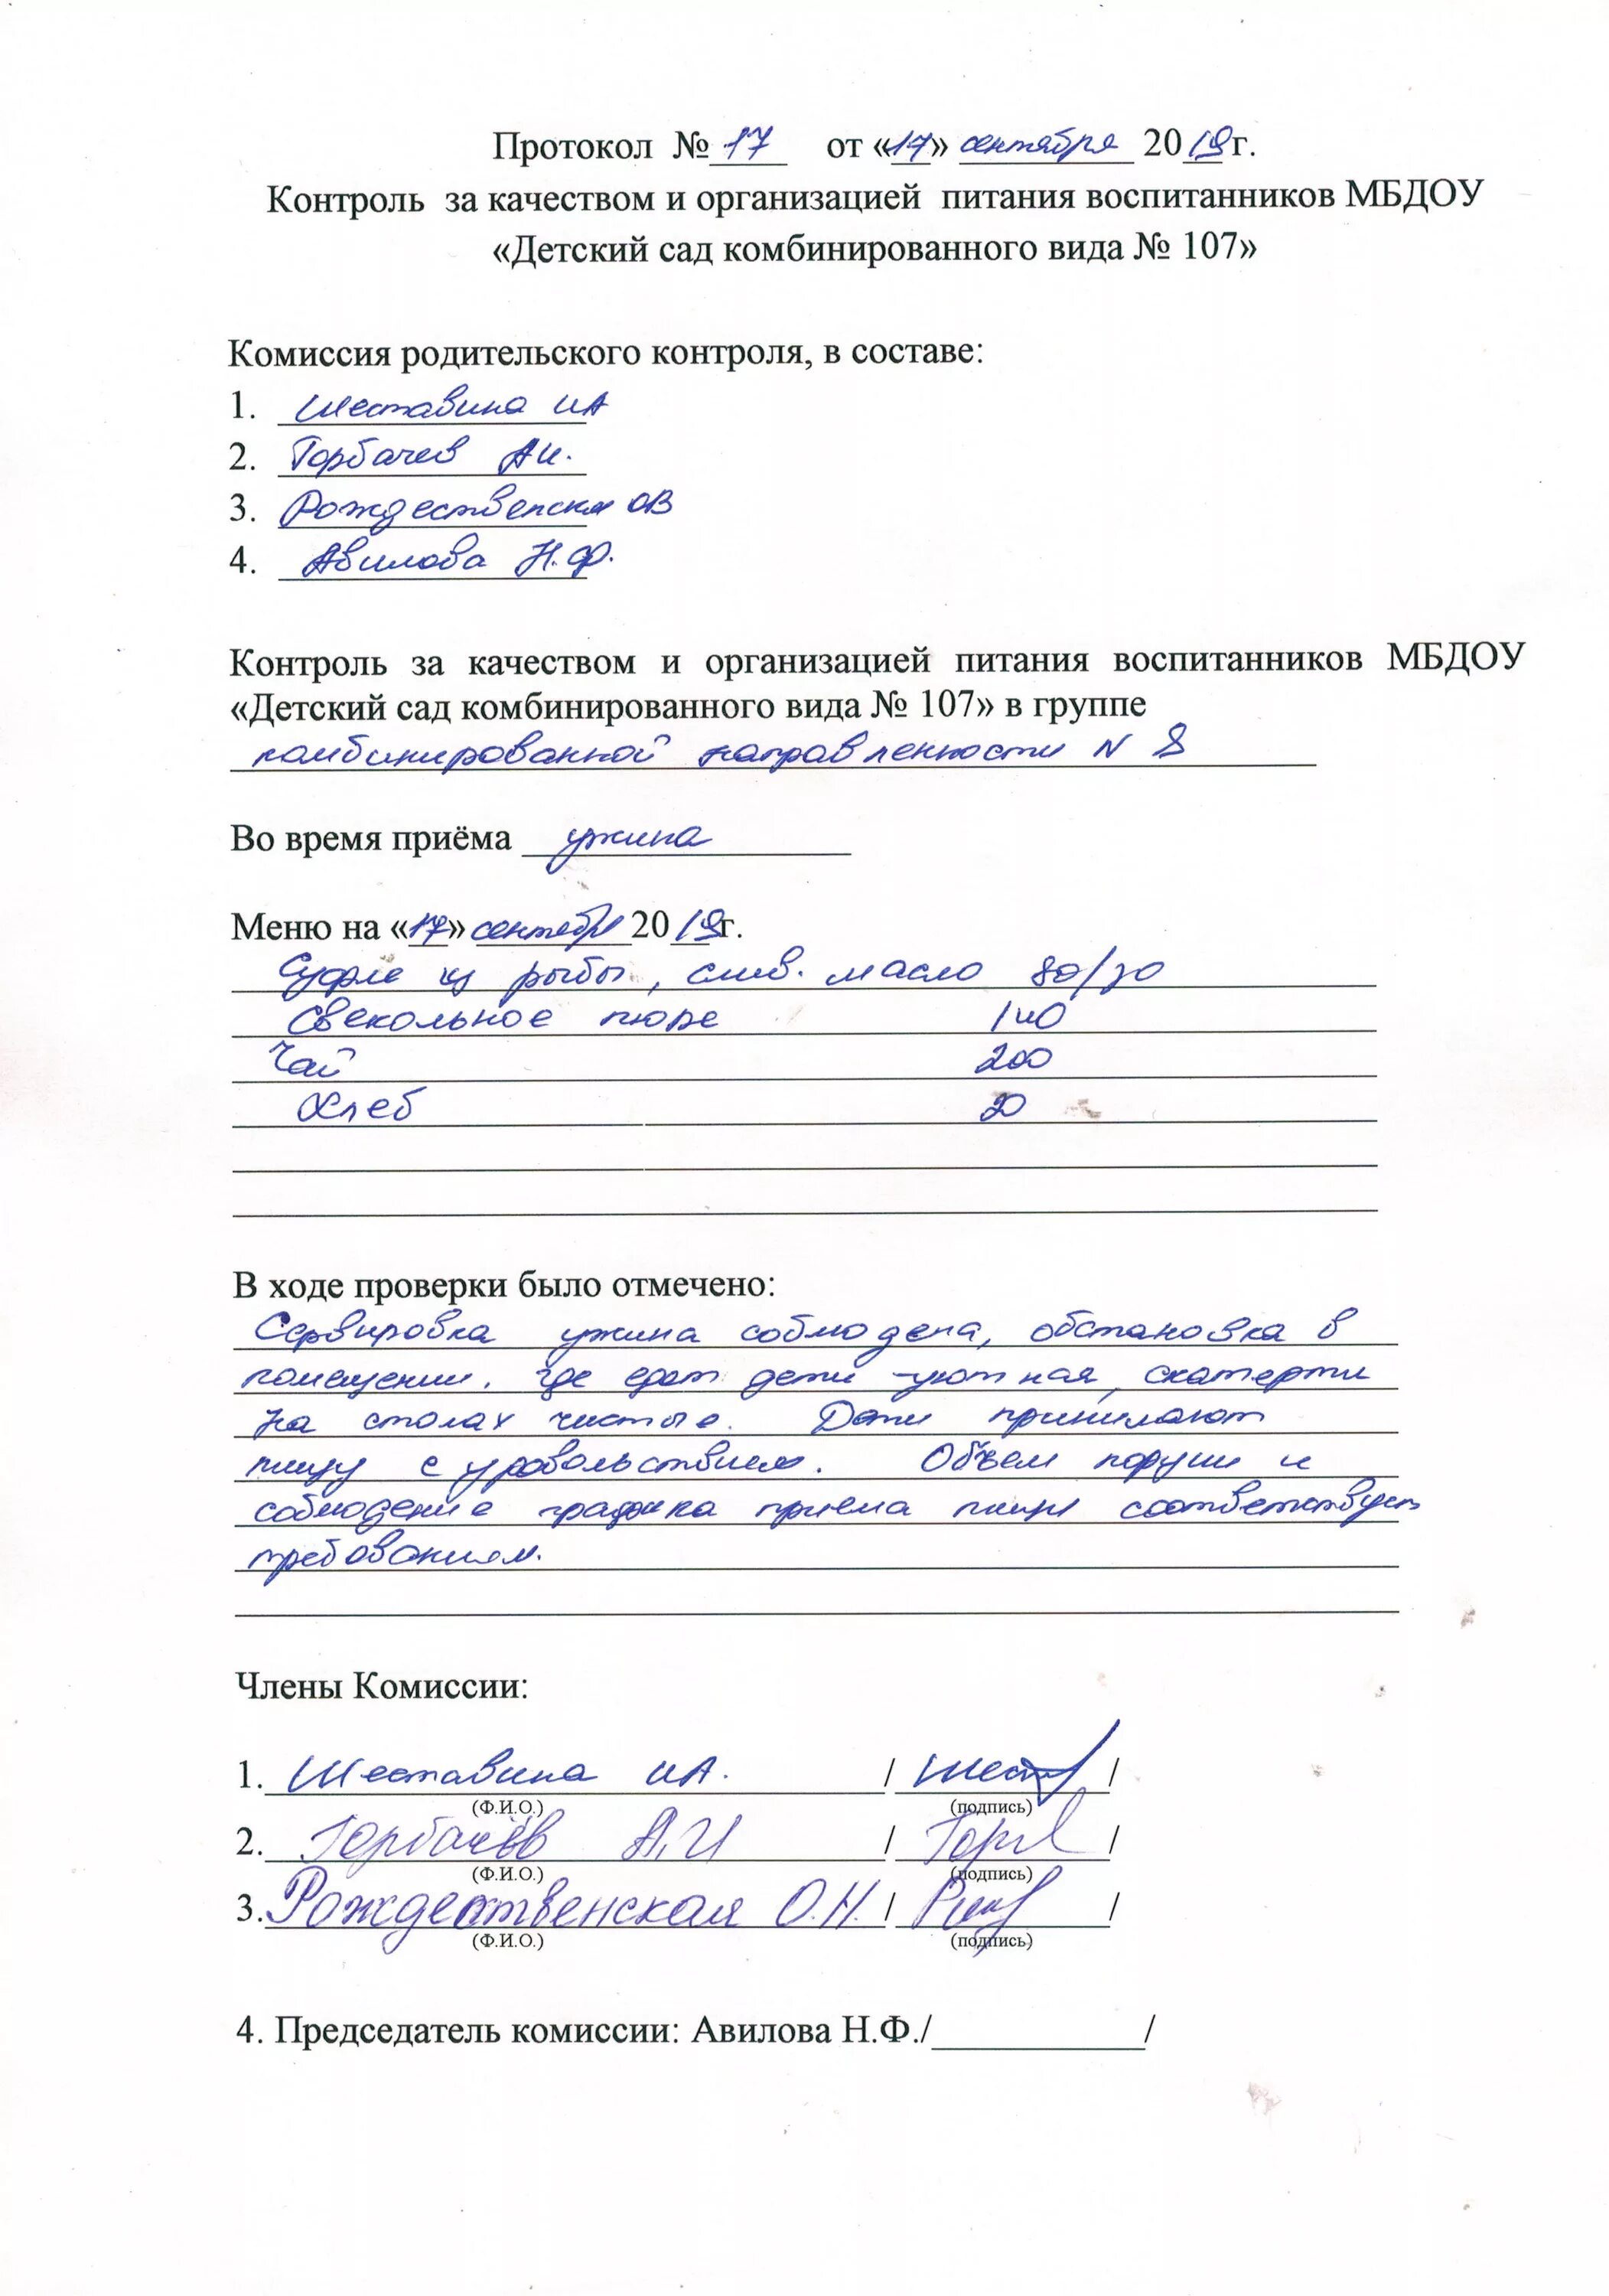 Протокол № 17 от «17» сентября 2019 г.
Контроль за качеством и организацией питания воспитанников МБДОУ
«Детский сад комбинированного вида № 107»
Комиссия родительского контроля, в составе:
1. Шеставина ИА
2. Горбачев АИ.
3. Рождественская ОВ
4. Авилова Н.Ф.
Контроль за качеством и организацией питания воспитанников МБДОУ
«Детский сад комбинированного вида № 107» в группе
комбинированной направленности N 8
Во время приёма ужина
Меню на «17» сентября 2019г.
Суфле из рыбы, слив. масло 80/
Свекольное пюре 140
Чай 200
Хлеб 20
В ходе проверки было отмечено:
Сервировка ужина соблюдена, обстановка в
помещении, где едят дети -уютная, скатерти
на столах чистые. Дети принимают
пищу с удовольствием. Объем порции и
соблюдение графика приема пищи соответствует
требованиям.
Члены Комиссии:
1. Шеставина ИА. / Шест /
(Ф.И.О.) (подпись)
2. Горбачёв А.И / /
(Ф.И.О.) (подпись)
3. Рождественская О.Н. / /
(Ф.И.О.) (подпись)
4. Председатель комиссии: Авилова Н.Ф./ /